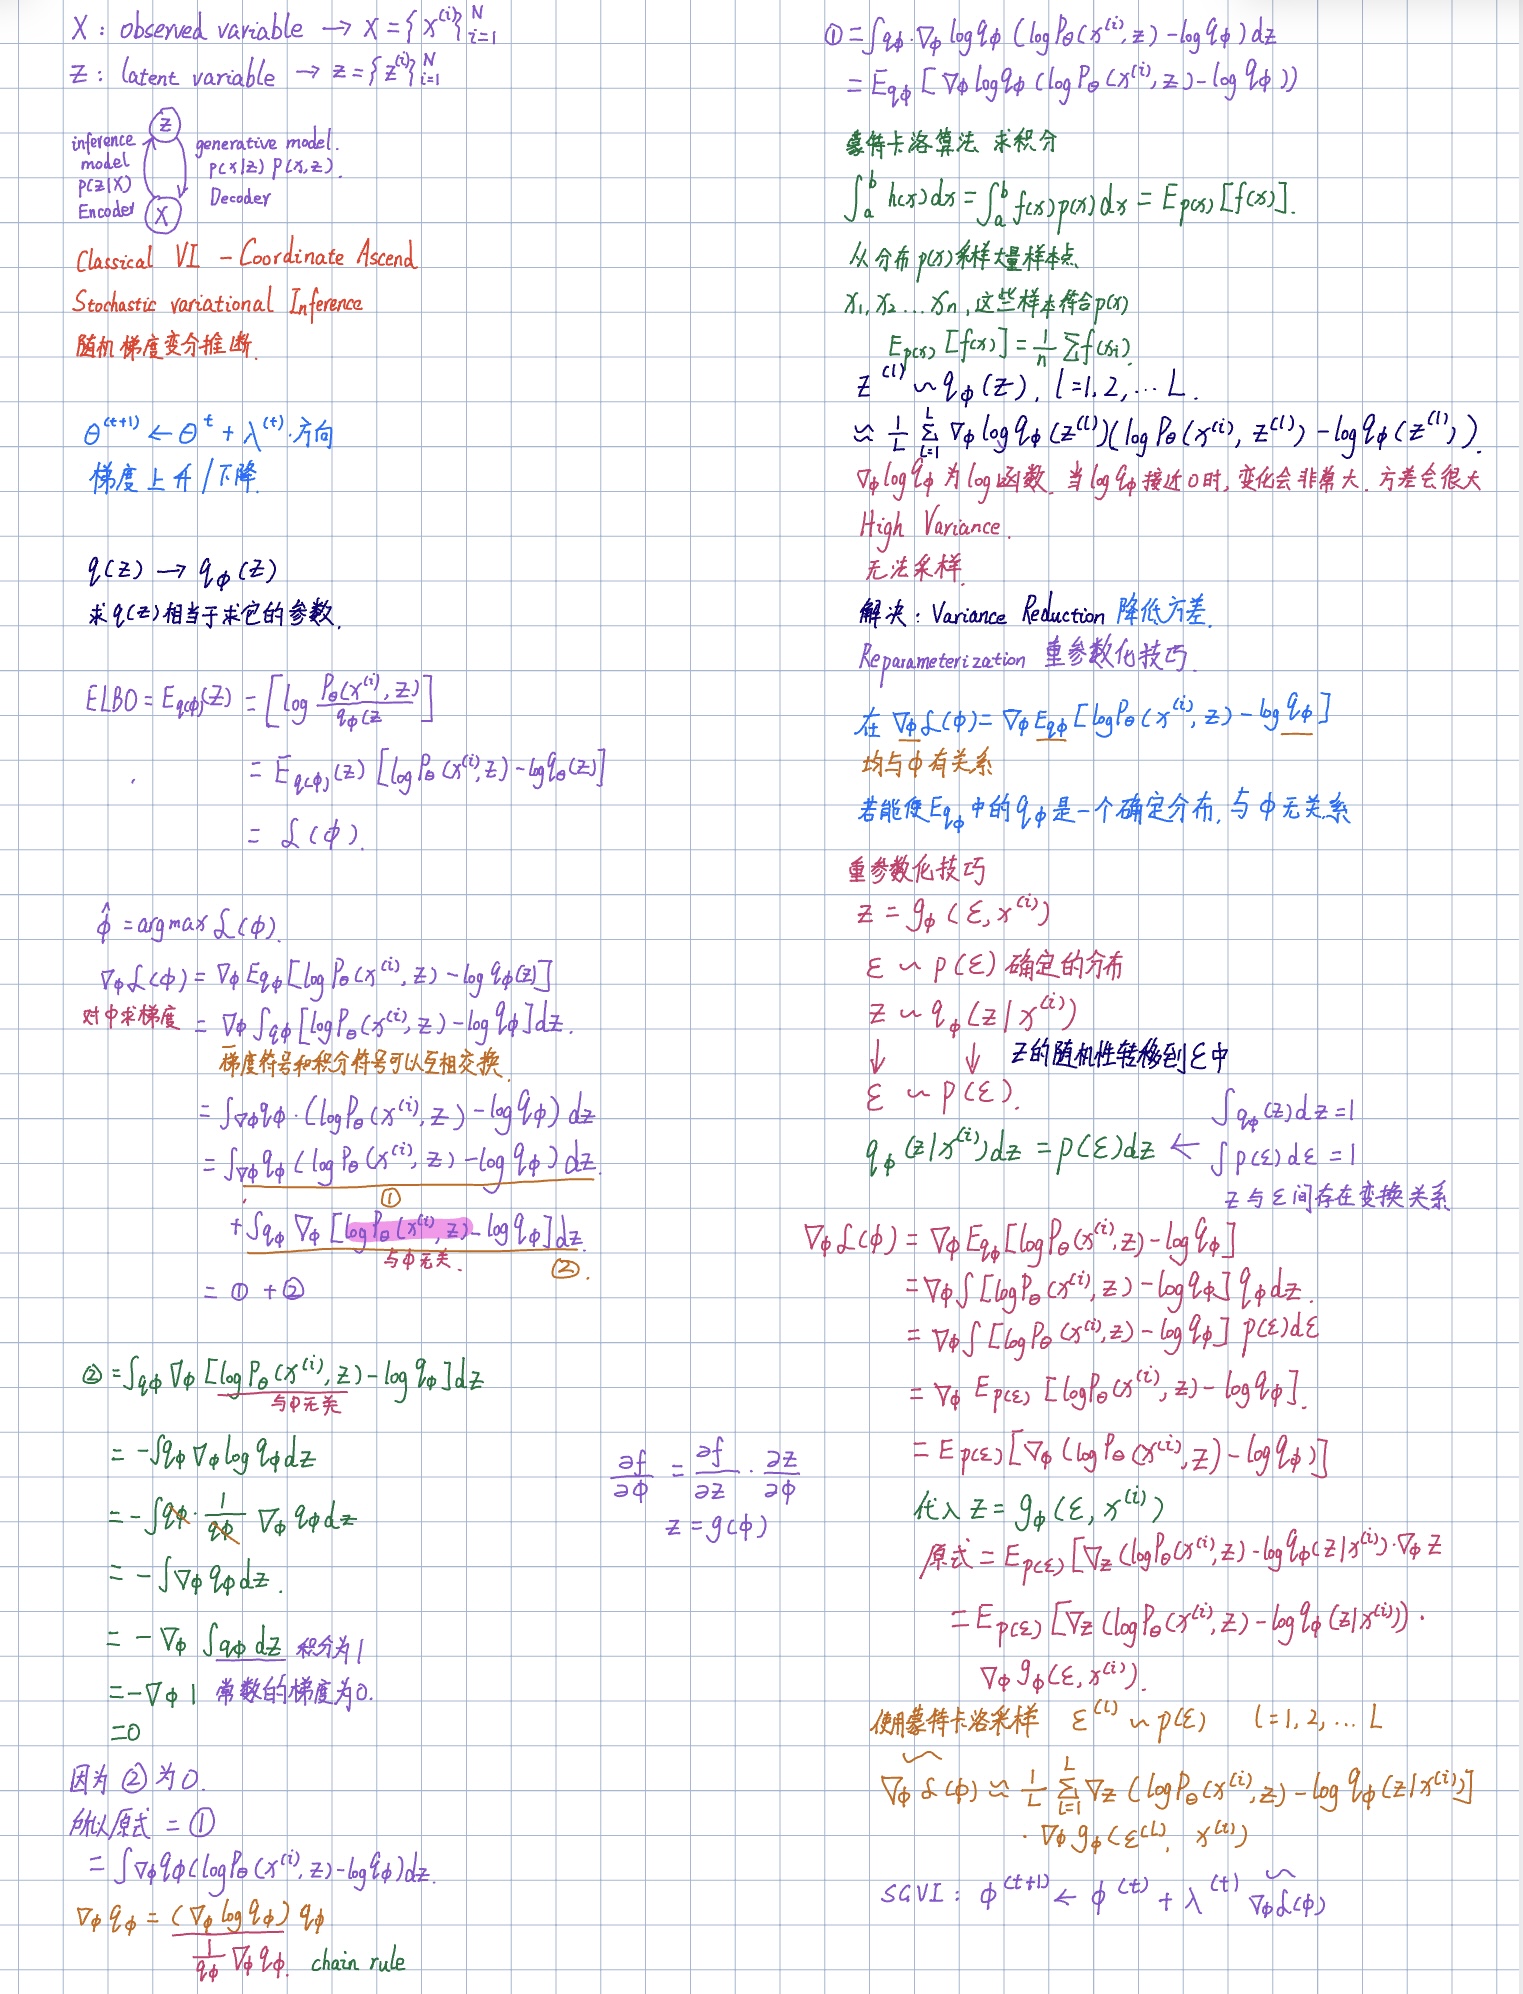 X : observed variable → X = { x^(i) }_{i=1}^N
Z : latent variable → z = { z^(i) }_{i=1}^N
Z
inference model
p(z|X)
Encoder
generative model.
p(x|z) p(x,z).
Decoder
X
Classical VI – Coordinate Ascend
Stochastic variational Inference
随机梯度变分推断.
θ^(t+1) ← θ^t + λ^(t)·方向
梯度上升/下降.
q(z) → q_φ(z)
求q(z)相当于求它的参数.
ELBO = E_{q(φ)}(z) = [log P_θ(x^(i), z) / q_φ(z]
= E_{q(φ)}(z) [log P_θ(x^(i), z) - log q_θ(z)]
= ℒ(φ).
φ̂ = argmax ℒ(φ).
∇_φ ℒ(φ) = ∇_φ E_{qφ} [log P_θ(x^(i), z) - log q_φ(z)]
对φ求梯度 = ∇_φ ∫ q_φ [log P_θ(x^(i), z) - log q_φ] dz.
梯度符号和积分符号可以互相交换.
= ∫ ∇_φ q_φ · (log P_θ(x^(i), z) - log q_φ) dz
= ∫ ∇_φ q_φ (log P_θ(x^(i), z) - log q_φ) dz.
①
+ ∫ q_φ ∇_φ [log P_θ(x^(i), z) - log q_φ] dz.
与φ无关. ②.
= ① + ②
② = ∫ q_φ ∇_φ [log P_θ(x^(i), z) - log q_φ] dz
与φ无关
= - ∫ q_φ ∇_φ log q_φ dz
= - ∫ q_φ · 1/q_φ ∇_φ q_φ dz
= - ∫ ∇_φ q_φ dz.
= - ∇_φ ∫ q_φ dz 积分为1
= - ∇_φ 1 常数的梯度为0.
= 0
因为 ② 为 0.
所以原式 = ①
= ∫ ∇_φ q_φ (log P_θ(x^(i), z) - log q_φ) dz.
∇_φ q_φ = (∇_φ log q_φ) q_φ
1/q_φ ∇_φ q_φ. chain rule
∂f/∂φ = ∂f/∂z · ∂z/∂φ
z = g(φ)
① = ∫ q_φ · ∇_φ log q_φ (log P_θ(x^(i), z) - log q_φ) dz
= E_{qφ} [∇_φ log q_φ (log P_θ(x^(i), z) - log q_φ))
蒙特卡洛算法 求积分
∫_a^b h(x) dx = ∫_a^b f(x) p(x) dx = E_{p(x)} [f(x)].
从分布p(x)采样大量样本点
x₁, x₂ ... xₙ, 这些样本符合p(x)
E_{p(x)} [f(x)] = 1/n Σ f(x_i).
z^(l) ∽ q_φ(z), l = 1, 2, ... L.
≈ 1/L Σ_{l=1}^L ∇_φ log q_φ(z^(l)) (log P_θ(x^(i), z^(l)) - log q_φ(z^(l))).
∇_φ log q_φ 为log函数. 当log q_φ 接近0时, 变化会非常大. 方差会很大
High Variance.
无法采样.
解决: Variance Reduction 降低方差.
Reparameterization 重参数化技巧.
在 ∇_φ ℒ(φ) = ∇_φ E_{qφ} [log P_θ(x^(i), z) - log q_φ]
均与φ有关系
若能使E_{qφ}中的q_φ是一个确定分布, 与φ无关系
重参数化技巧
z = g_φ(ε, x^(i))
ε ∽ p(ε) 确定的分布
z ∽ q_φ(z|x^(i))
↓ ↓ z的随机性转移到ε中
ε ∽ p(ε).
q_φ(z|x^(i)) dz = p(ε) dz ←
∫ q_φ(z) dz = 1
∫ p(ε) dε = 1
z 与 ε 间存在变换关系
∇_φ ℒ(φ) = ∇_φ E_{qφ} [log P_θ(x^(i), z) - log q_φ]
= ∇_φ ∫ [log P_θ(x^(i), z) - log q_φ] q_φ dz.
= ∇_φ ∫ [log P_θ(x^(i), z) - log q_φ] p(ε) dε
= ∇_φ E_{p(ε)} [log P_θ(x^(i), z) - log q_φ].
= E_{p(ε)} [∇_φ (log P_θ(x^(i), z) - log q_φ)]
代入 z = g_φ(ε, x^(i))
原式 = E_{p(ε)} [∇_z (log P_θ(x^(i), z) - log q_φ(z|x^(i)) · ∇_φ z
= E_{p(ε)} [∇_z (log P_θ(x^(i), z) - log q_φ(z|x^(i))) ·
∇_φ g_φ(ε, x^(i)).
使用蒙特卡洛采样 ε^(l) ∽ p(ε) l = 1, 2, ... L
∇̃_φ ℒ(φ) ≈ 1/L Σ_{l=1}^L ∇_z (log P_θ(x^(i), z) - log q_φ(z|x^(i))]
· ∇_φ g_φ(ε^(l), x^(i))
SGVI : φ^(t+1) ← φ^(t) + λ^(t) ∇̃_φ ℒ(φ)